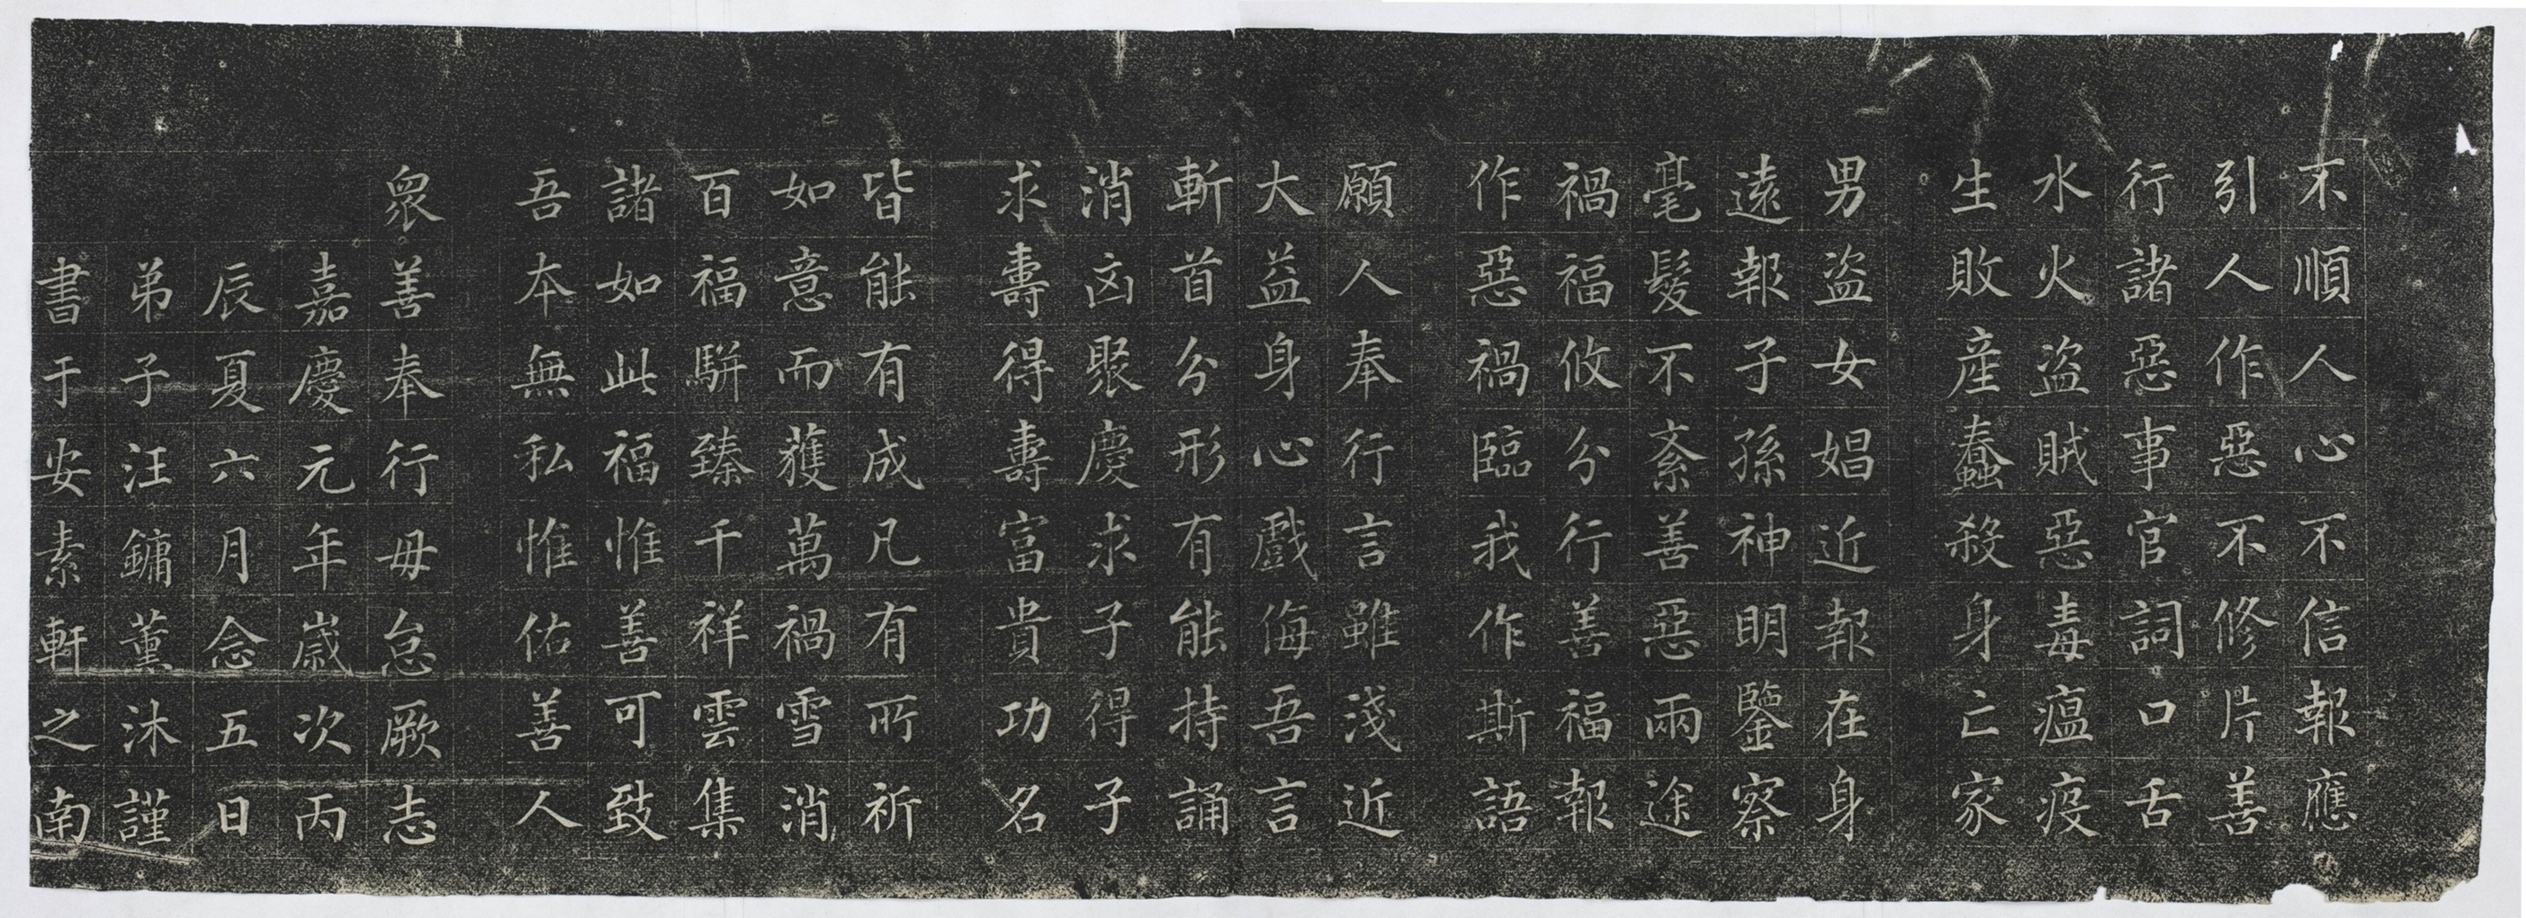 不順人心不信報應
引人作惡不修片善
行諸惡事官詞口舌
水火盜賊惡毒瘟疫
生敗產蠢殺身亡家
男盜女娼近報在身
遠報子孫神明鑒察
毫髮不紊善惡兩途
禍福攸分行善福報
作惡禍臨我作斯語
願人奉行言雖淺近
大益身心戲侮吾言
斬首分形有能持誦
消凶聚慶求子得子
求壽得壽富貴功名
皆能有成凡有所祈
如意而獲萬禍雪消
百福駢臻千祥雲集
諸如此福惟善可致
吾本無私惟佑善人
眾善奉行毋怠厥志
嘉慶元年歲次丙
辰夏六月念五日
弟子汪鏞薰沐謹
書于安素軒之南